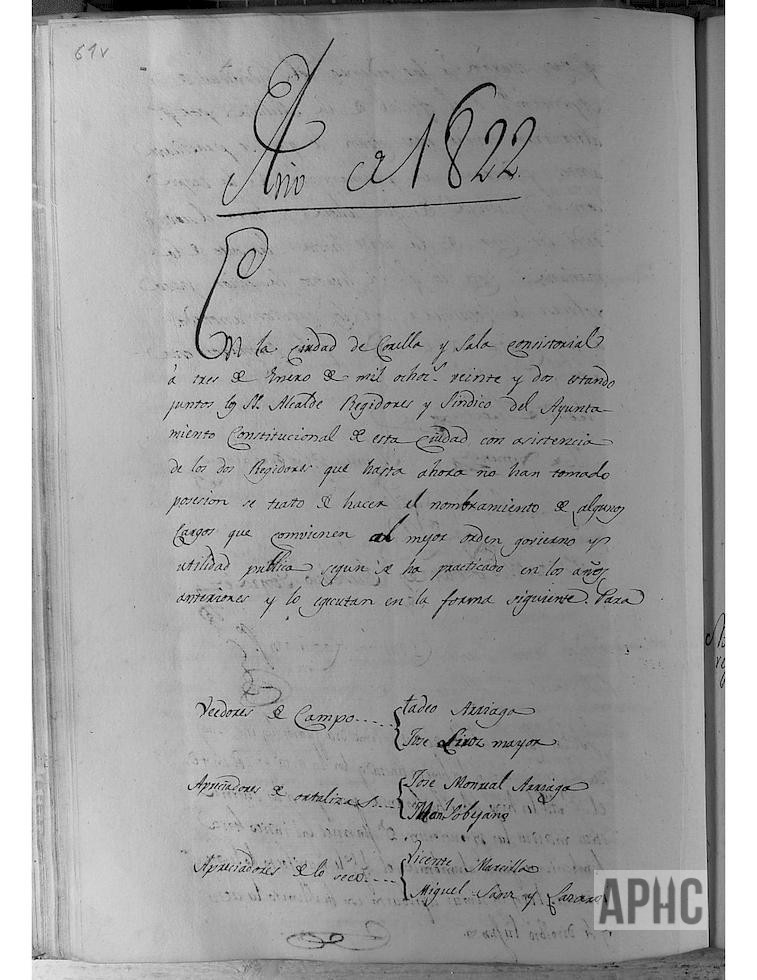 61v
Año de 1822
En la ciudad de Corella y Sala consistorial
à tres de Enero de mil ochoz.^s veinte y dos estando
juntos los S.^s Alcalde Regidores y Sindico del Ayunta-
miento Constitucional de esta Ciudad con asistencia
de los dos Regidores que hasta ahora no han tomado
posesion se trato de hacer el nombramiento de algunos
Cargos que combienen al mejor orden govierno y
utilidad publica segun se ha practicado en los años
anteriores y lo egecutan en la forma siguiente. Para
Veedores de Campo.....{ tadeo Arriaga
Jose mayor
Apreciadores de ortalizas...{ Jose Monreal Arriaga
Man.^l Sobejano
Apreciadores de lo seco....{ Vicente Marcilla
Miguel Sanz y
APHC